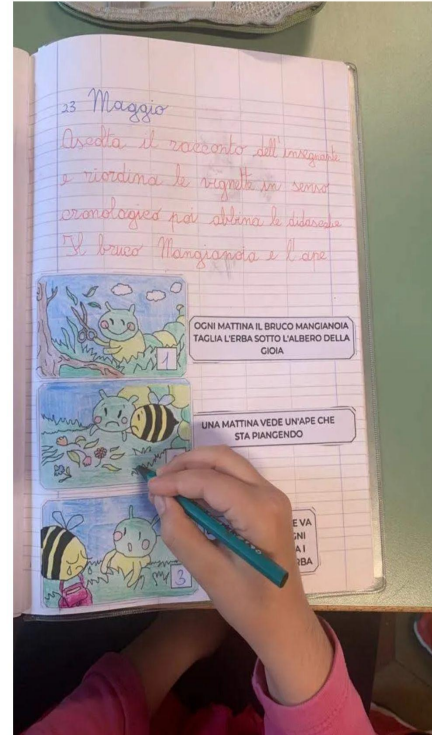 23 Maggio
Ascolta il racconto dell'insegnante
e riordina le vignette in senso
cronologico poi abbina le didascalie
Il bruco Mangianoia e l'ape
1
OGNI MATTINA IL BRUCO MANGIANOIA
TAGLIA L'ERBA SOTTO L'ALBERO DELLA
GIOIA
UNA MATTINA VEDE UN'APE CHE
STA PIANGENDO
3
E VA